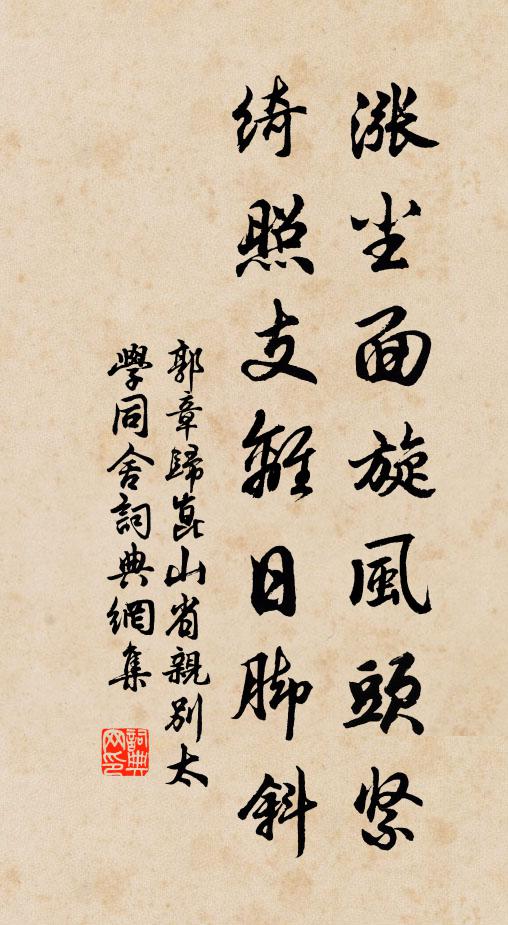 漲尘面旋風頭紧
綺照支離日脚斜
郭章歸崑山省親別太
學同舍詞典網集
詞典网印